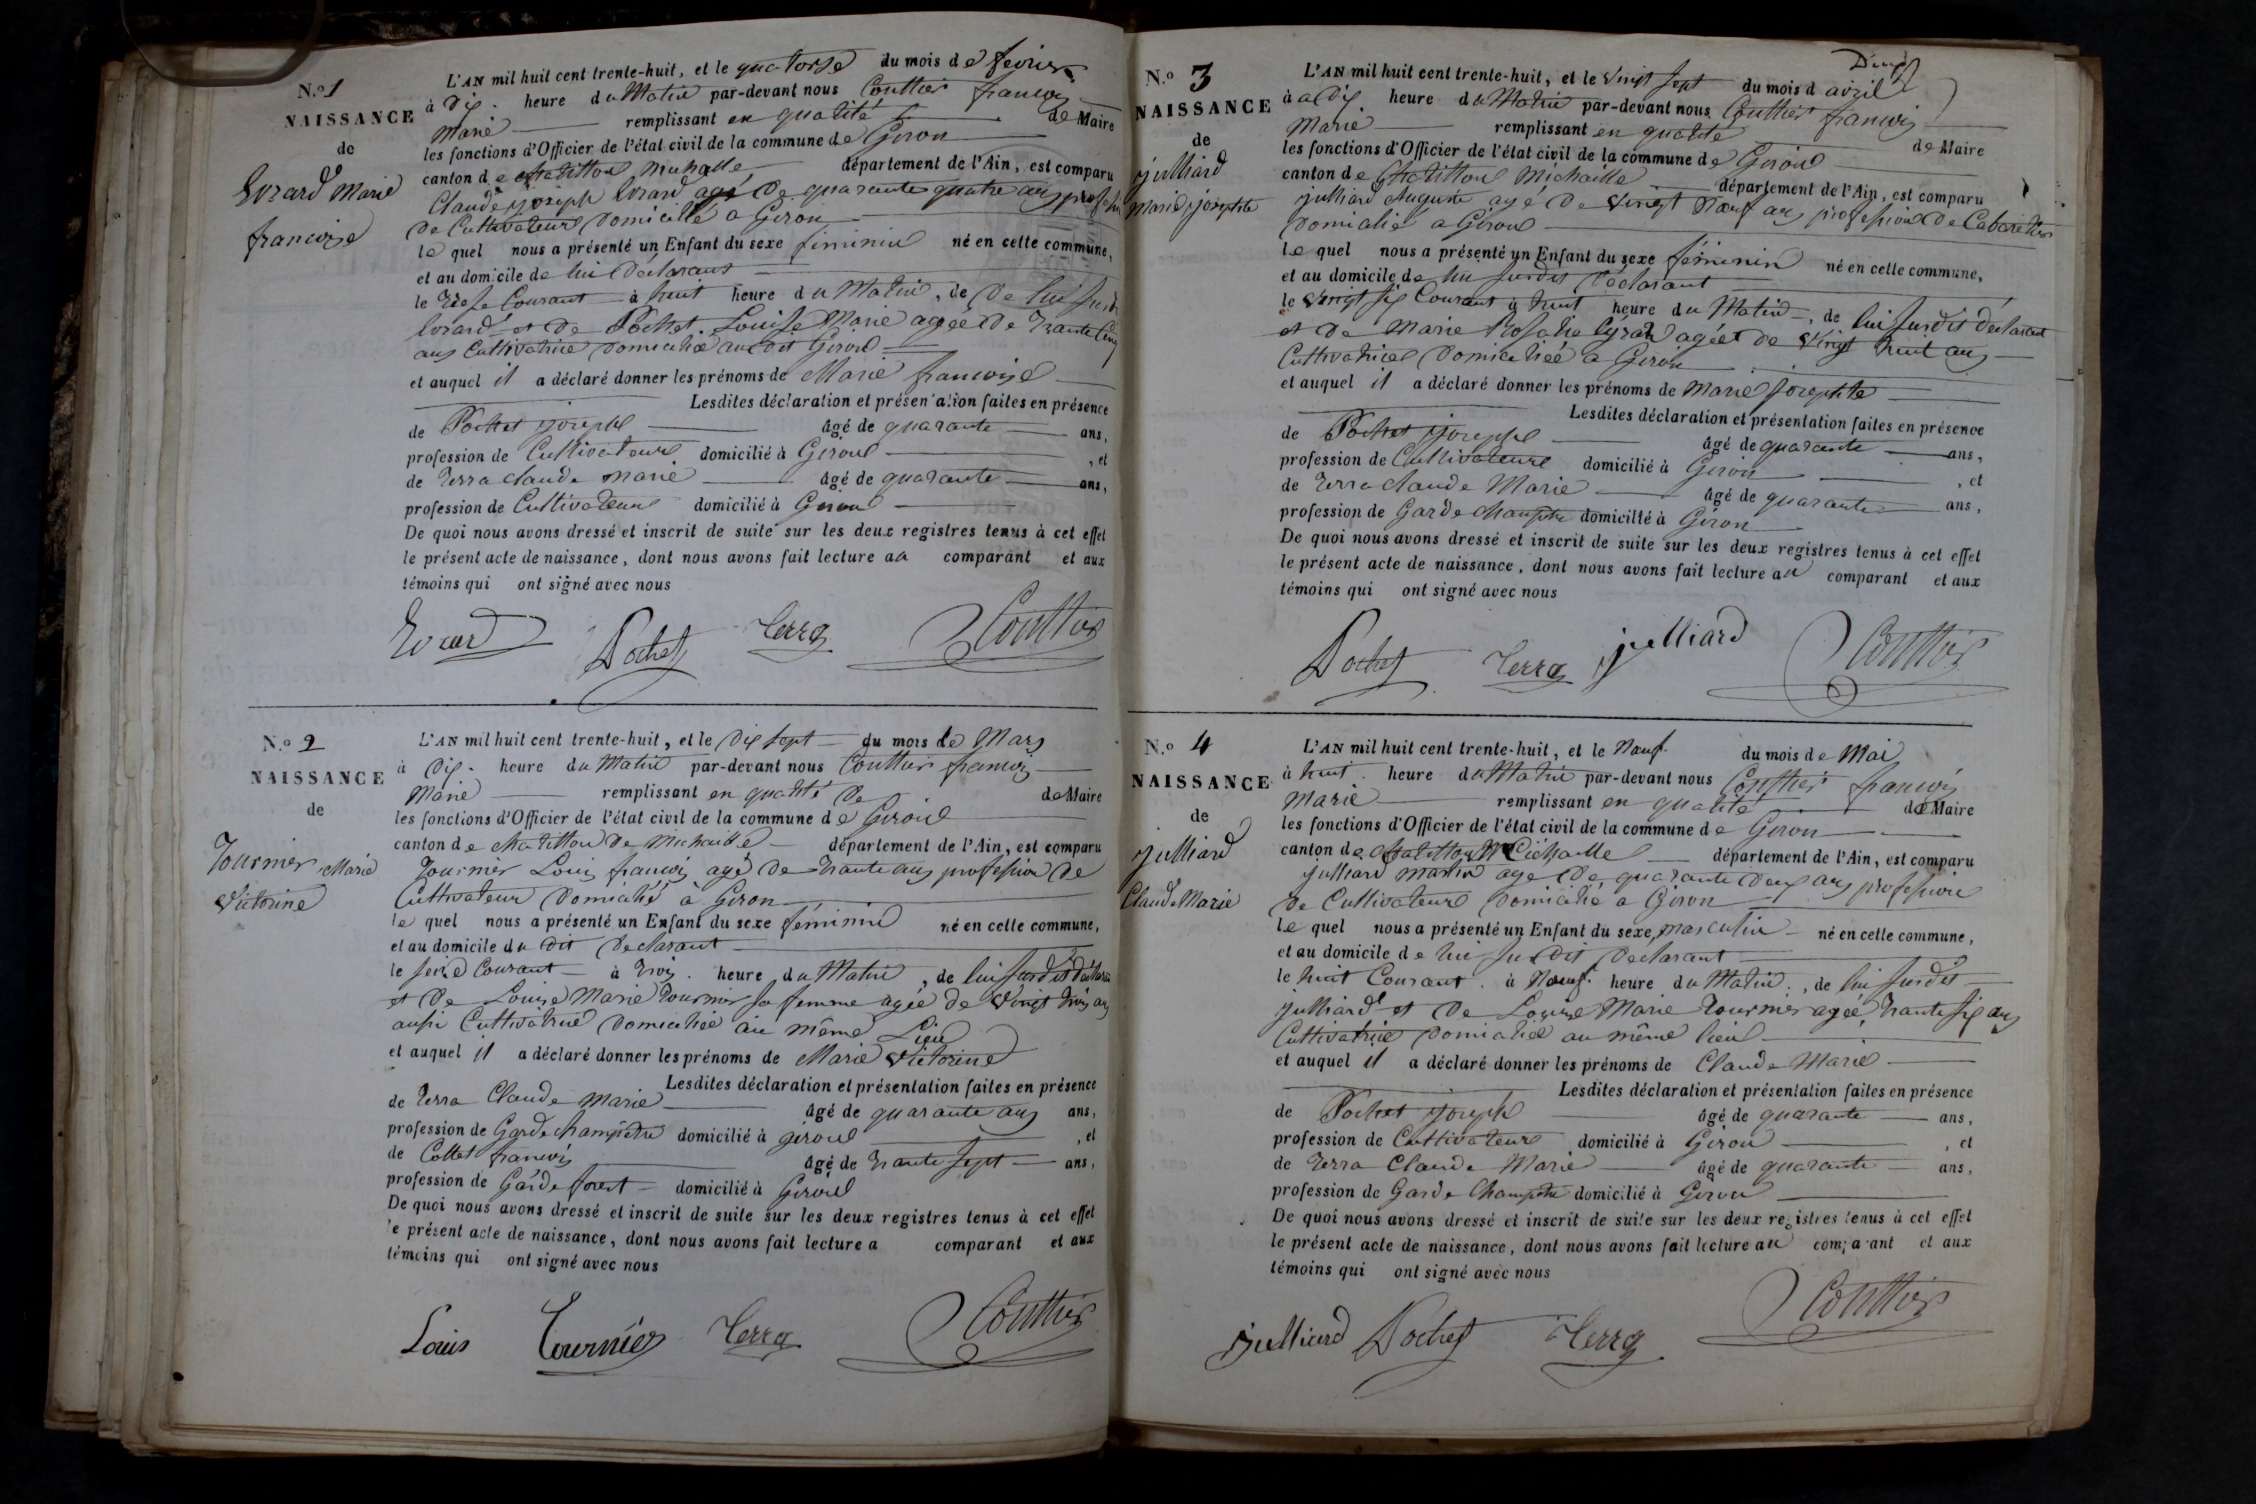 N.o 1
NAISSANCE
de
Evrard Marie
francoise
L'AN mil huit cent trente-huit, et le quatorse du mois de fevrier
à Dix heure du Matin par-devant nous Couttier francois
Marie remplissant en qualité de Maire
les fonctions d'Officier de l'état civil de la commune de Giron
canton de Chatillon Michaille département de l'Ain, est comparu
Claude joseph Evrard agé de quarante quatre ans profession
de Cultivateur Domicillé a Giron
le quel nous a présenté un Enfant du sexe féminin né en cette commune,
et au domicile de lui Déclarant
le Courant à huit heure du Matin, de De lui
Evrard et de Pochet Louise Marie agée De Trante Cinq
ans Cultivatrice Domiciliée au dit Giron
et auquel il a déclaré donner les prénoms de Marie francoise
Lesdites déclaration et présentation faites en présence
de Pochet joseph âgé de quarante ans,
profession de Cultivateur domicilié à Giron , et
de Terra claude marie âgé de quarante ans,
profession de Cultivateur domicilié à Giron
De quoi nous avons dressé et inscrit de suite sur les deux registres tenus à cet effet
le présent acte de naissance, dont nous avons fait lecture au comparant et aux
témoins qui ont signé avec nous
Evrard Pochet Terra Couttier
N.o 2
NAISSANCE
de
Tournier Marie
Victorine
L'AN mil huit cent trente-huit, et le Dix sept du mois de Mars
à Dix heure du Matin par-devant nous Couttier francois
Marie remplissant en qualité De de Maire
les fonctions d'Officier de l'état civil de la commune de Giron
canton de chatillon De Michaille département de l'Ain, est comparu
Tournier Louis francois agé De Trante ans profession De
Cultivateur Domicilié à Giron
le quel nous a présenté un Enfant du sexe féminin né en cette commune,
et au domicile du dit Declarant
le seize Courant à Trois heure du Matin, de lui susdit Déclarant
et De Louise Marie Tournier sa femme agée de Vingt Trois ans
aussi Cultivatrice Domiciliée au même Lieu
et auquel il a déclaré donner les prénoms de Marie Victorine
Lesdites déclaration et présentation faites en présence
de Terra Claude Marie âgé de quarante ans ans,
profession de Garde champêtre domicilié à giron , et
de Collet francois âgé de Trante sept ans,
profession de Garde forest domicilié à Giron
De quoi nous avons dressé et inscrit de suite sur les deux registres tenus à cet effet
le présent acte de naissance, dont nous avons fait lecture a comparant et aux
témoins qui ont signé avec nous
Louis Tournier Terra Couttier
N.o 3
NAISSANCE
de
julliard
Marie josephte
L'AN mil huit cent trente-huit, et le Vingt sept du mois d avril
à a Dix heure du Matin par-devant nous Couttier francois
Marie remplissant en qualité de Maire
les fonctions d'Officier de l'état civil de la commune de Giron
canton de Chatillon Michaille département de l'Ain, est comparu
julliard Auguste agé De Vingt Neuf ans profession De Cabaretier
Domicilié a Giron
le quel nous a présenté un Enfant du sexe féminin né en cette commune,
et au domicile de lui susdit Déclarant
le Vingt six Courant à huit heure du Matin, de lui susdit déclarant
et De Marie Rosalie agée de Vingt huit ans
Cultivatrice Domiciliée a Giron
et auquel il a déclaré donner les prénoms de Marie josephte
Lesdites déclaration et présentation faites en présence
de Pochet joseph âgé de quarante ans,
profession de Cultivateur domicilié à Giron , et
de Terra claude Marie âgé de quarante ans,
profession de Garde champêtre domicilié à Giron
De quoi nous avons dressé et inscrit de suite sur les deux registres tenus à cet effet
le présent acte de naissance, dont nous avons fait lecture au comparant et aux
témoins qui ont signé avec nous
Pochet Terra julliard Couttier
N.o 4
NAISSANCE
de
julliard
Claude Marie
L'AN mil huit cent trente-huit, et le Neuf du mois de Mai
à huit heure du Matin par-devant nous Couttier francois
Marie remplissant en qualité de Maire
les fonctions d'Officier de l'état civil de la commune de Giron
canton de chatillon Michaille département de l'Ain, est comparu
julliard Martin agé De quarante Deux ans profession
De Cultivateur Domicilié a Giron
le quel nous a présenté un Enfant du sexe masculin né en cette commune,
et au domicile de lui sus Dit Declarant
le huit Courant à Neuf heure du Matin, de lui susdit
julliard et De Louise Marie Tournier agée Trante six ans
Cultivatrice Domiciliée au même lieu
et auquel il a déclaré donner les prénoms de Claude Marie
Lesdites déclaration et présentation faites en présence
de Pochet joseph âgé de quarante ans,
profession de Cultivateur domicilié à Giron , et
de Terra Claude Marie âgé de quarante ans,
profession de Garde Champetre domicilié à Giron
De quoi nous avons dressé et inscrit de suite sur les deux registres tenus à cet effet
le présent acte de naissance, dont nous avons fait lecture au comparant et aux
témoins qui ont signé avec nous
julliard Pochet Terra Couttier